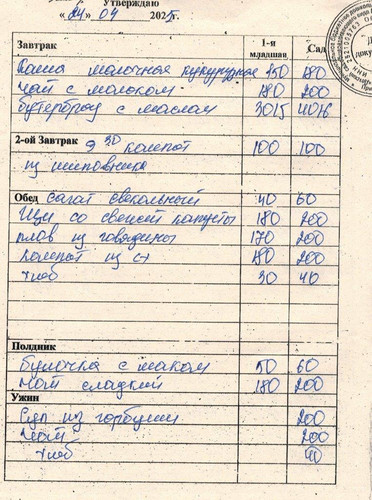 Утверждаю
«24» 04 2025г.
Завтрак 1-я младшая Сад
Каша молочная кукурузная 150 180
Чай с молоком 180 200
Бутерброд с маслом 30/5 40/6
2-ой Завтрак 9 30 компот 100 100
из шиповника
Обед салат свекольный 40 60
Щи со свежей капусты 180 200
плов из говядины 170 200
компот из с/ф 180 200
хлеб 30 40
Полдник
Булочка с маком 50 60
Чай сладкий 180 200
Ужин
Суп из горбуши 200
Чай 200
хлеб 40